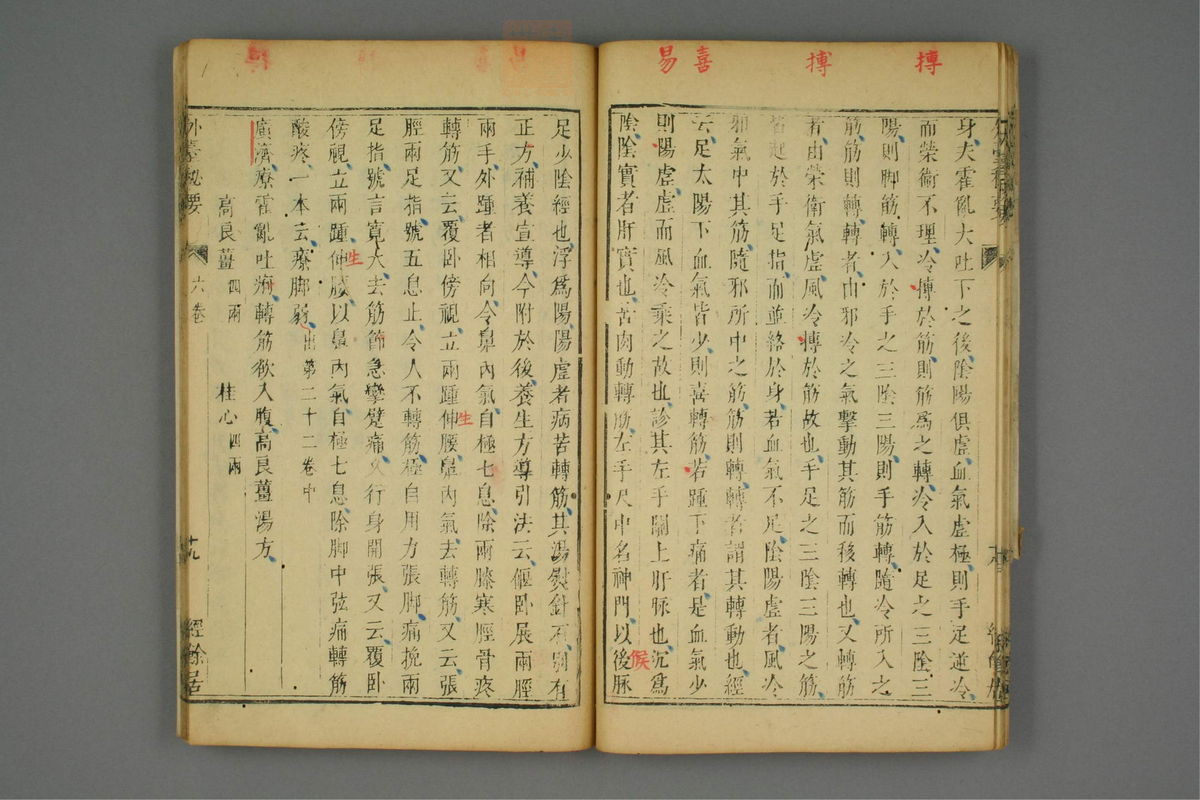 搏
搏
喜
易
身夫霍亂大吐下之後陰陽俱虛血氣虛極則手足逆冷
而榮衞不理冷搏於筋則筋爲之轉冷入於足之三陰三
陽則脚筋轉入於手之三陰三陽則手筋轉隨冷所入之
筋筋則轉轉者由邪冷之氣擊動其筋而移轉也又轉筋
者由榮衛氣虛風冷搏於筋故也手足之三陰三陽之筋
皆起於手足指而並絡於身若血氣不足陰陽虛者風冷
邪氣中其筋隨邪所中之筋筋則轉轉者謂其轉動也經
云足太陽下血氣皆少則喜轉筋若踵下痛者是血氣少
則陽虛虛而風冷乘之故也診其左手關上肝脉也沉爲
陰陰實者肝實也苦肉動轉筋左手尺中名神門以後脉
候
足少陰經也浮爲陽陽虛者病苦轉筋其湯熨針石別有
正方補養宣導今附於後養生方導引法云偃卧展兩脛
兩手外踵者相向令鼻內氣自極七息除兩膝寒脛骨疼
轉筋又云覆卧傍視立兩踵伸腰鼻內氣去轉筋又云張
生
脛兩足指號五息止令人不轉筋極自用力張脚痛挽兩
足指號言寬大去筋節急攣蹵痛又行身開張又云覆卧
傍視立兩踵伸腰以鼻內氣自極七息除脚中弦痛轉筋
生
酸疼一本云療脚弱出第二十二卷中
廣濟療霍亂吐痢轉筋欲入腹高良薑湯方
高良薑四兩 桂心四兩
外臺秘要 六卷 十九 經餘居